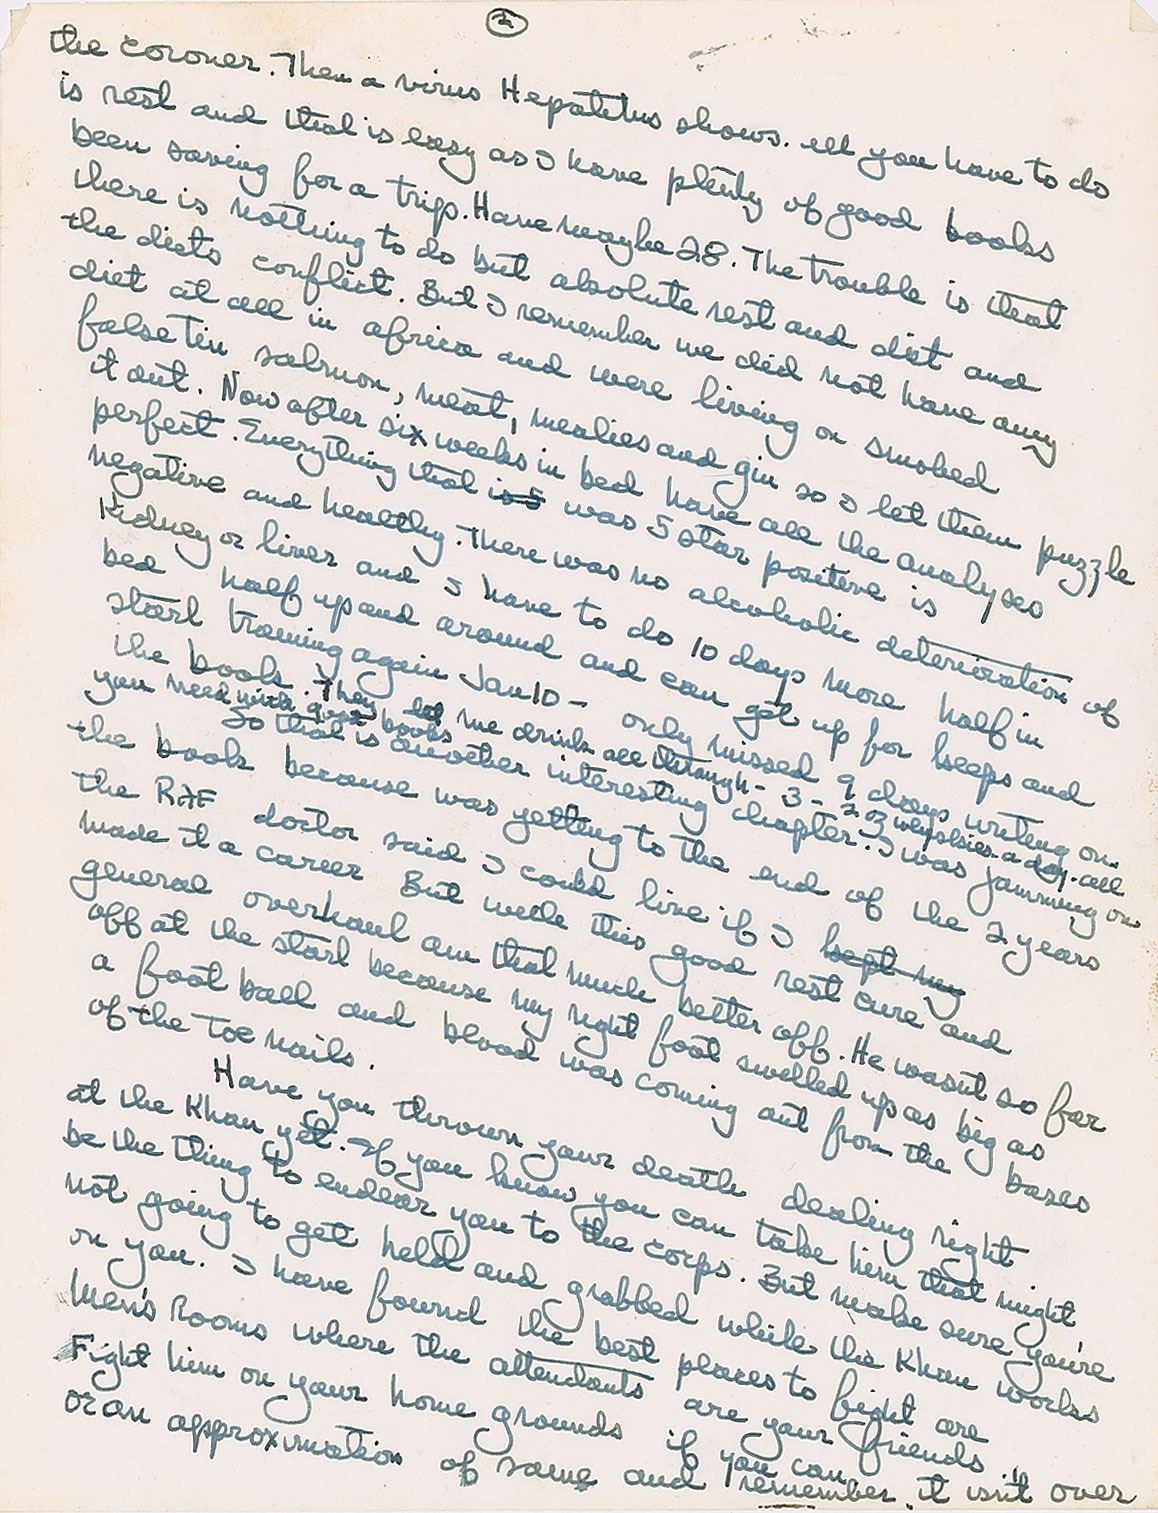 2
the coroner. Then a virus Hepatitus shows. All you have to do
is rest and that is easy as I have plenty of good books
been saving for a trip. Have maybe 28. The trouble is that
there is nothing to do but absolute rest and diet and
the diets conflict. But I remember we did not have any
diet at all in africa and were living on smoked
false tin salmon, meat, mealies and gin so I let them puzzle
it out. Now after six weeks in bed have all the analyses
perfect. Everything that is 5 was 5 star positive is
negative and healthy. There was no alcoholic deterioration of
Kidney or liver and I have to do 10 days more half in
bed half up and around and can get up for keeps and
start training again Jan 10 – only missed 9 days writing on
the book. They let me drink all through – 3 – 2 oz whyskies a day. all
you need with good books
So that is another interesting chapter. I was jamming on
the book because was getting to the end of the 2 years
the RAF doctor said I could live if I kept my
made it a career But with this good rest cure and
general overhaul am that much better off. He wasnt so far
off at the start because my right foot swelled up as big as
a foot ball and blood was coming out from the bases
of the toe nails.
Have you thrown your death dealing right
at the Khan yet. If you know you can take him that might
be the thing to endear you to the corps. But make sure you're
not going to get held and grabbed while the Khan works
on you. I have found the best places to fight are
Men's Rooms where the attendants are your friends.
Fight him on your home grounds if you can
or an approximation of same and remember it isn't over